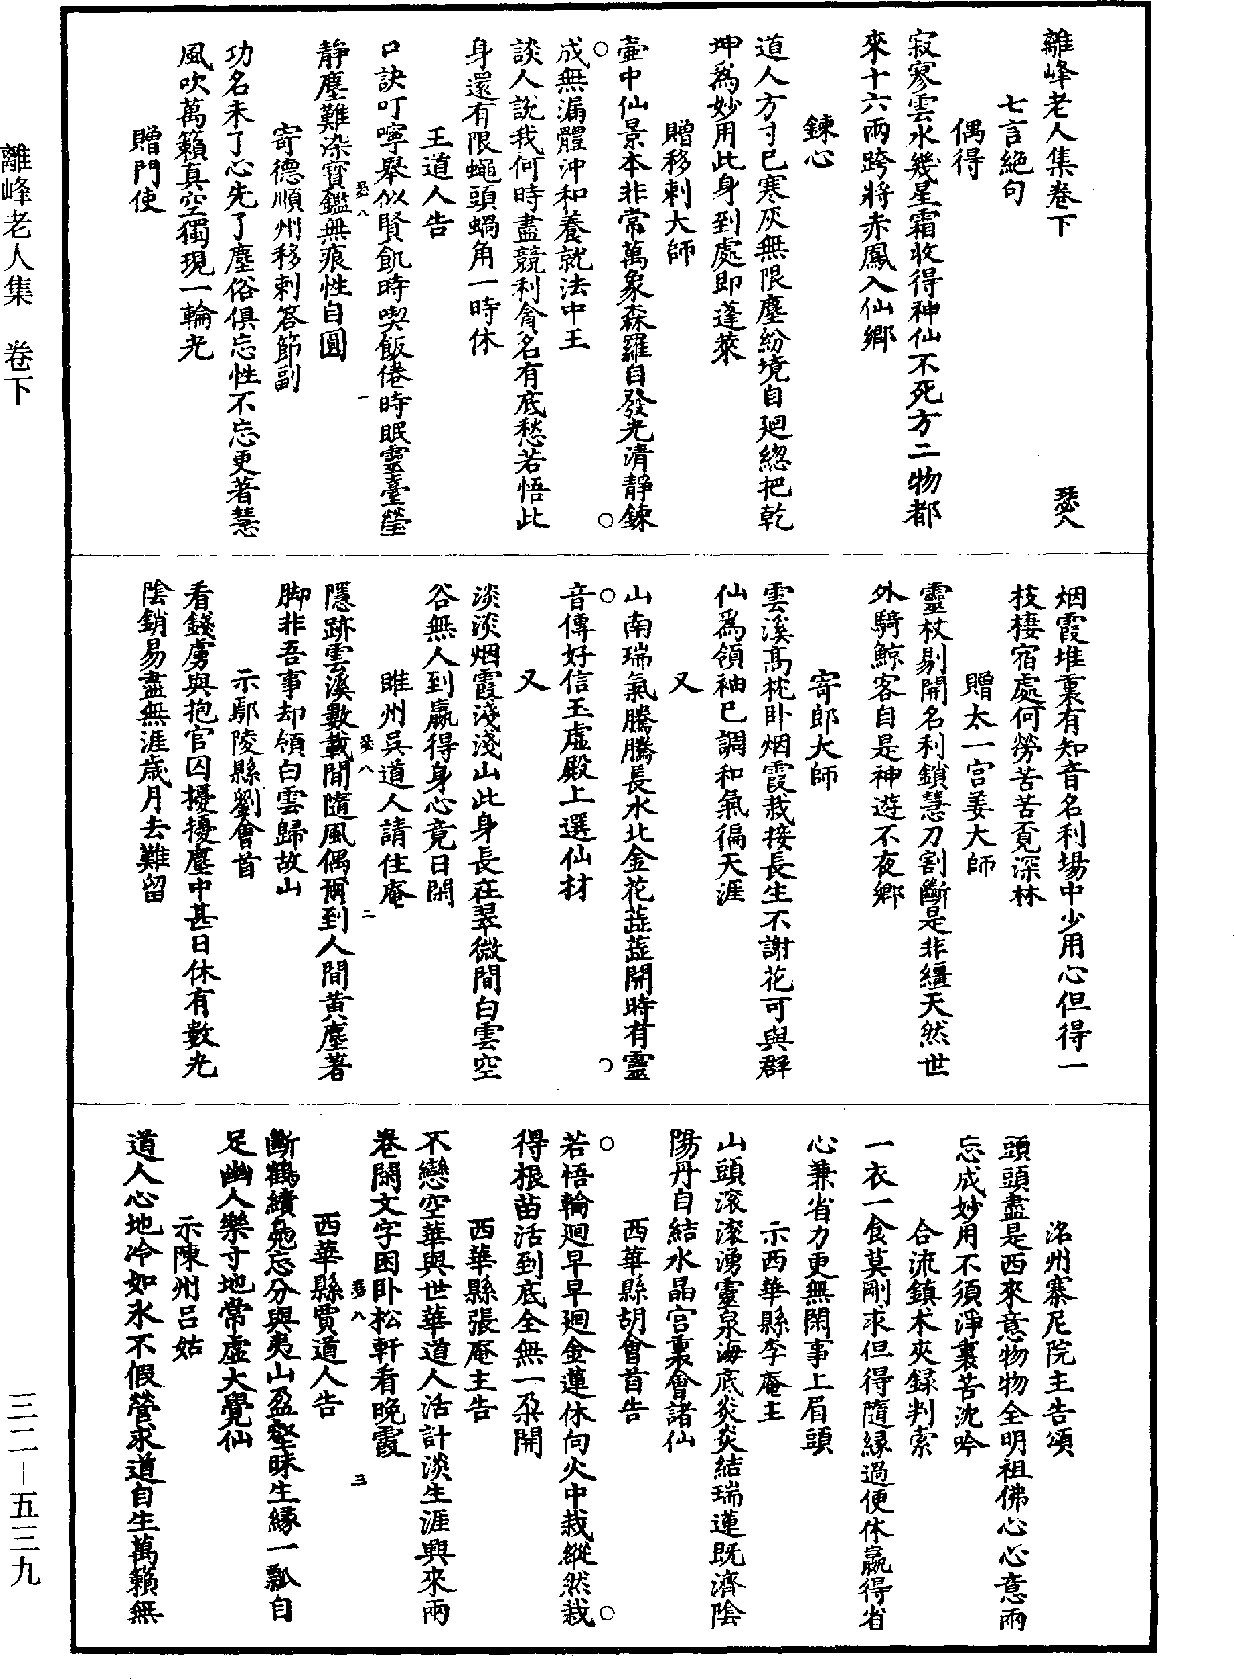 離峰老人集卷下
七言絕句
偶得
寂寥雲水幾星霜收得神仙不死方二物都
來十六兩跨將赤鳳入仙鄉
鍊心
道人方寸已寒灰無限塵紛境自廻緫把乾
坤爲妙用此身到處即蓬萊
贈移剌大師
壷中仙景本非常萬象森羅自發光清靜鍊
成無漏體沖和養就法中王
談人說我何時盡競利貪名有底愁若悟此
身還有限蠅頭蝸角一時休
王道人告
口訣叮嚀舉似賢飢時喫飯倦時眠靈臺瑩
靜塵難染寶鑑無痕性自圓
寄德順州移剌答節副
功名未了心先了塵俗俱忘性不忘更著慧
風吹萬籟真空獨現一輪光
贈門使
烟霞堆裏有知音名利場中少用心但得一
枝棲宿處何勞苦苦覔深林
贈太一宫姜大師
靈杖剔開名利鎖慧刀割斷是非繮天然世
外騎鯨客自是神遊不夜鄉
寄郎大師
雲溪髙枕卧烟霞栽接長生不謝花可與群
仙爲領袖已調和氣徧天涯
又
山南瑞氣騰騰長水北金花蕋蕋開時有靈
音傳好信玉虛殿上選仙材
又
淡淡烟霞淺淺山此身長在翠微間白雲空
谷無人到贏得身心竟日閑
睢州吳道人請住庵
隱跡雲溪數載間隨風偶爾到人間黄塵著
脚非吾事却領白雲歸故山
示鄢陵縣劉會首
看錢虜與抱官囚擾擾塵中甚日休有數光
陰銷易盡無涯歲月去難留
洺州寨尼院主告頌
頭頭盡是西來意物物全明祖佛心心意兩
忘成妙用不須淨裏苦沈吟
合流鎮术夾録判索
一衣一食莫剛求但得隨緣過便休贏得省
心兼省力更無閑事上眉頭
示西華縣李庵主
山頭滚滚湧靈泉海底炎炎結瑞蓮既濟陰
陽丹自結水晶宫裏會諸仙
西華縣胡會首告
若悟輪廻早早廻金蓮休向火中栽縱然栽
得根苗活到底全無一朶開
西華縣張庵主告
不戀空華與世華道人活計淡生涯興來兩
卷閑文字困卧松軒看晚霞
西華縣賈道人告
斷鶴續鳧忘分與夷山盈壑昧生緣一瓢自
足幽人樂寸地常虛大覺仙
示陳州吕姑
道人心地冷如氷不假營求道自生萬籟無
離峰老人集 卷下
三二－五三九